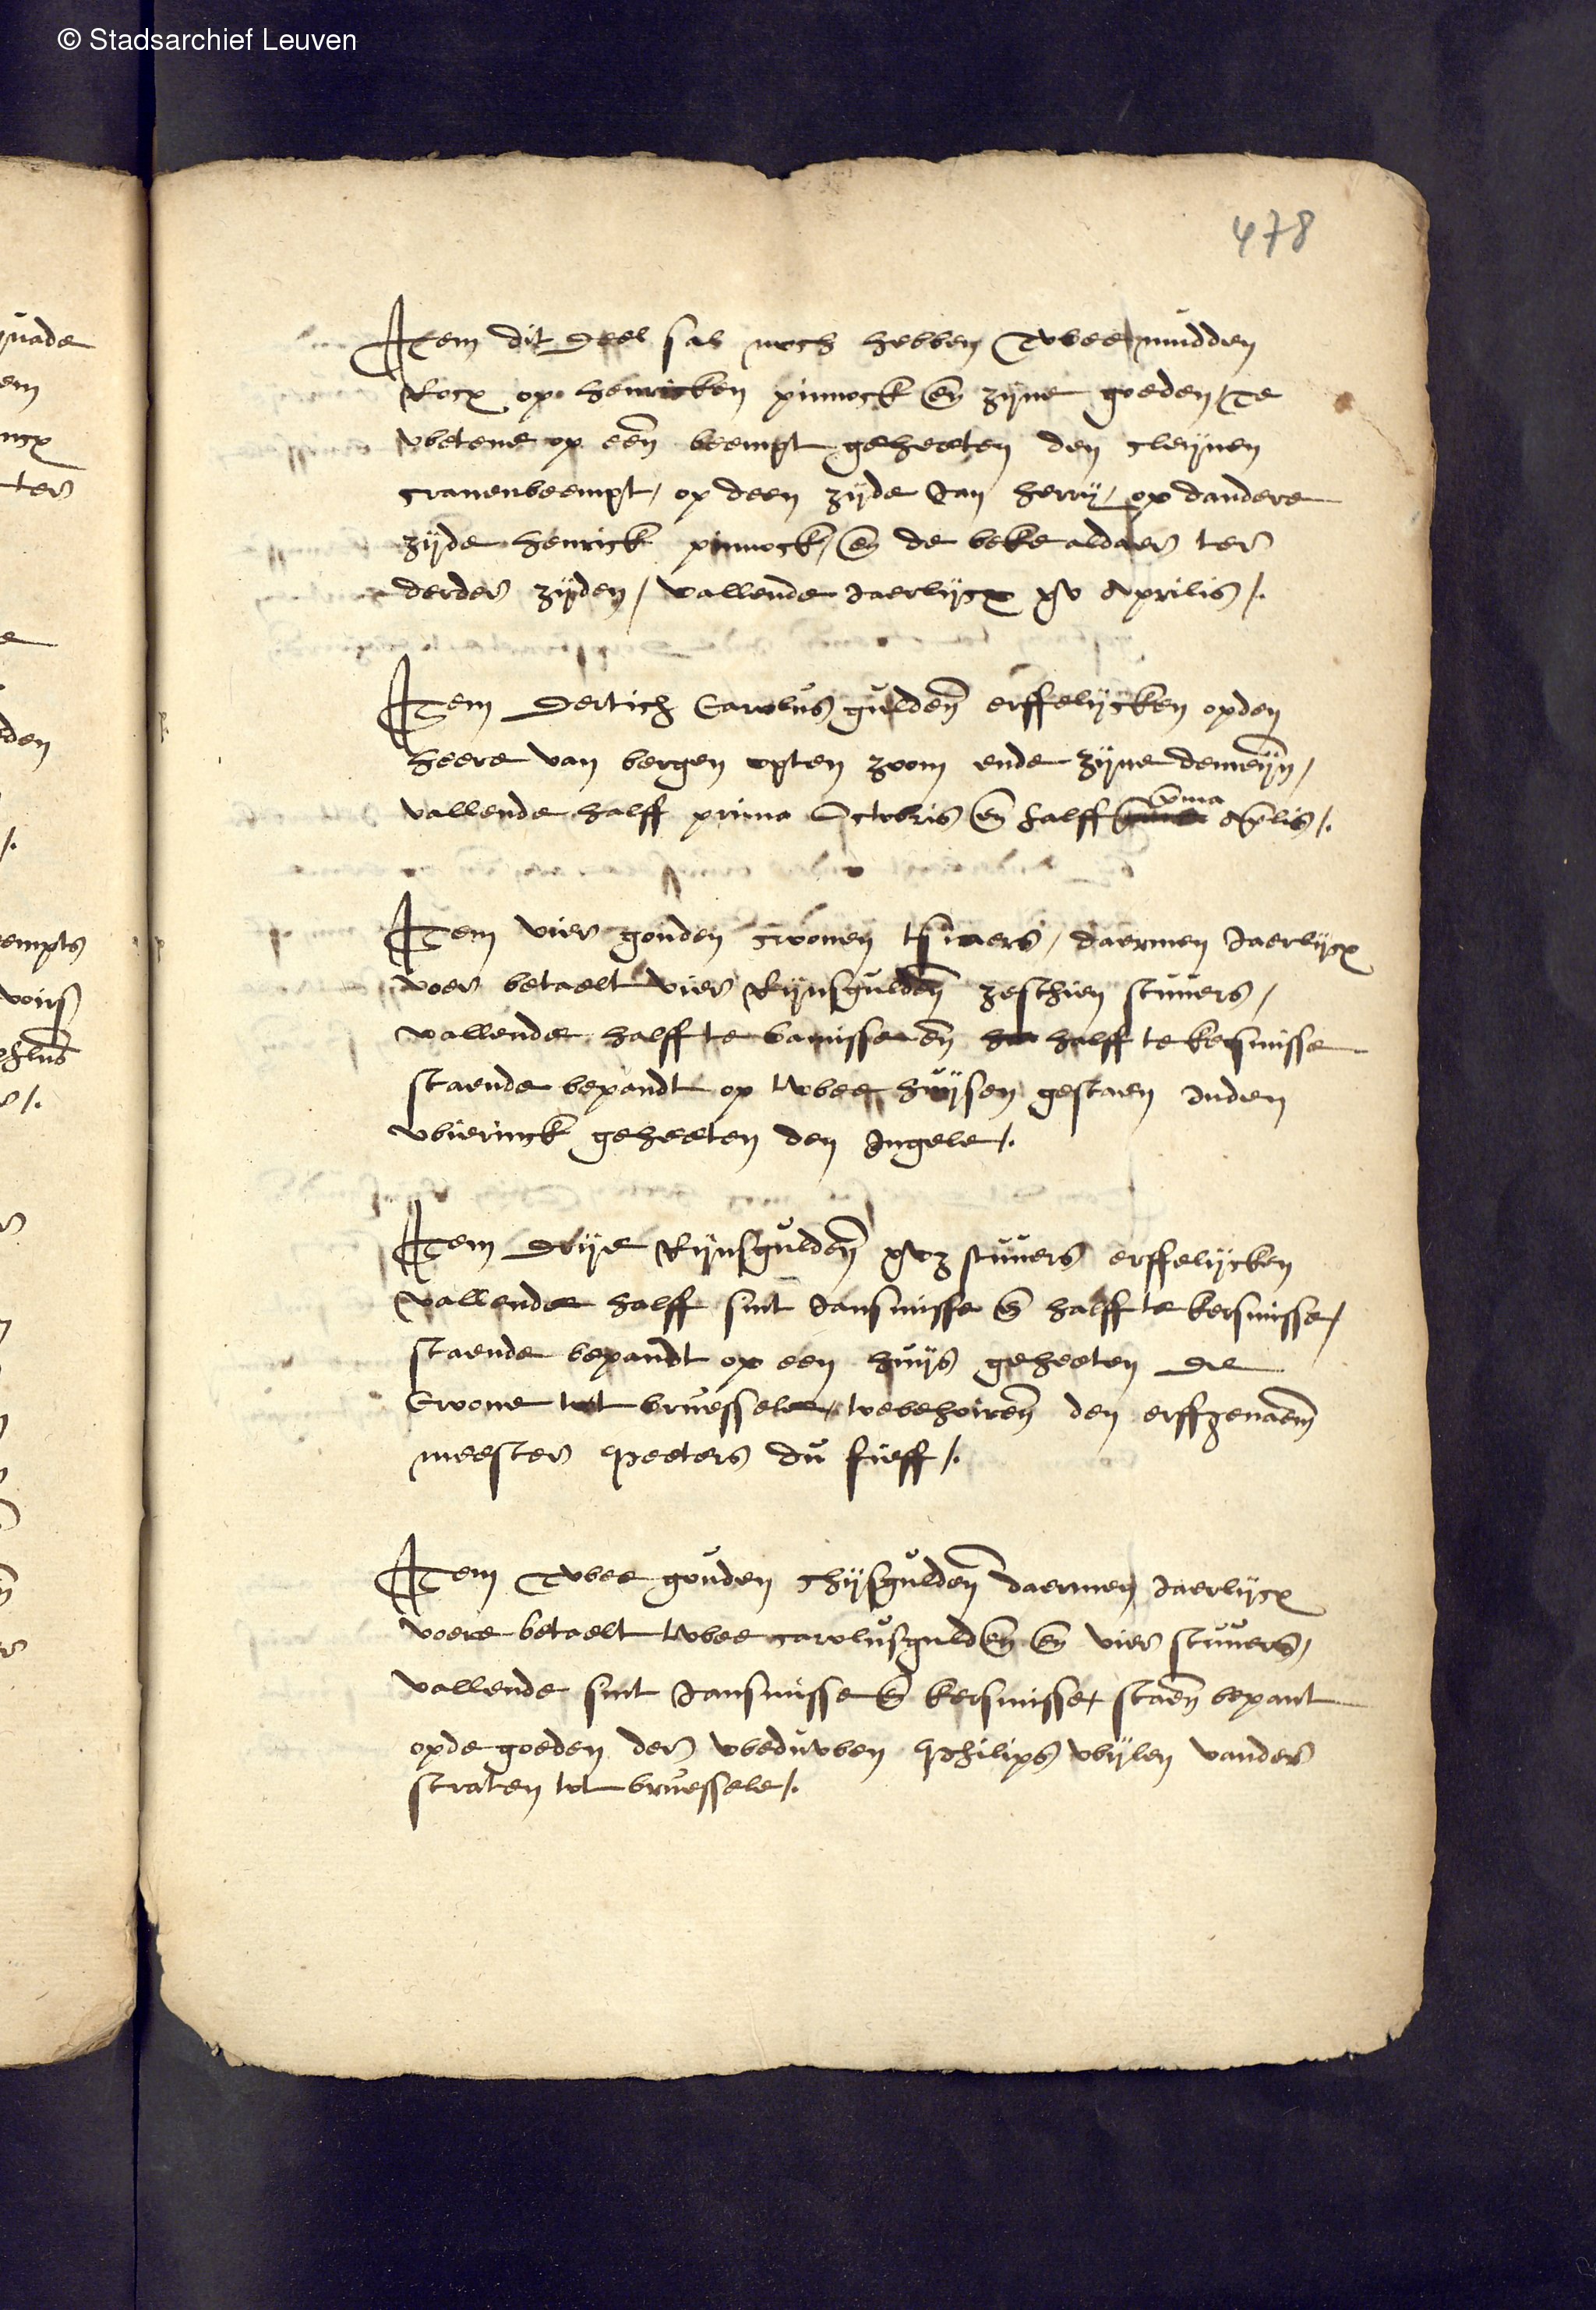 © Stadsarchief Leuven
478
Item dit deel sal noch hebben Twee mudden
Rocx op henricken pinnock en zijne goeden, Te
wetene op een beempt geheeten den cleijnen
cranenbeempt, op deen zijde Jan herrij, op dandere
zijde henrick pinnock, en de beke aldaer ter
derder zijden, vallende Jaerlijcx xv Aprilis /.
Item dertich Carolus gulden erffelijcken opden
heere van bergen opten zoom ende zijne demeijn,
vallende halff prima Octobris en halff pma Aplis /.
Item vier gouden croonen tsiaers, daermen Jaerlijcx
voer betaelt vier Rijnsgulden zesthien stuvers,
vallende halff te bamisse en halff te kersmisse
staende bepandt op twee huijsen gestaen Inden
wierinck geheeten den Ingele /.
Item drije Rijnsgulden xvz stuvers erffelijcken
vallende halff sint Jansmisse en halff te kersmisse,
staende bepandt op een huijs geheeten de
Croone tot bruessele, toebehoiren den erffgenaem
meester Peeters du fieff /.
Item Twee gouden chijsgulden daermen Jaerlijcx
voere betaelt twee carolusgulden en vier stuvers,
vallende sint Jansmisse en kersmisse, staen bepant
opde goeden der weduwen Philips wijlen vander
straten tot bruessele /.